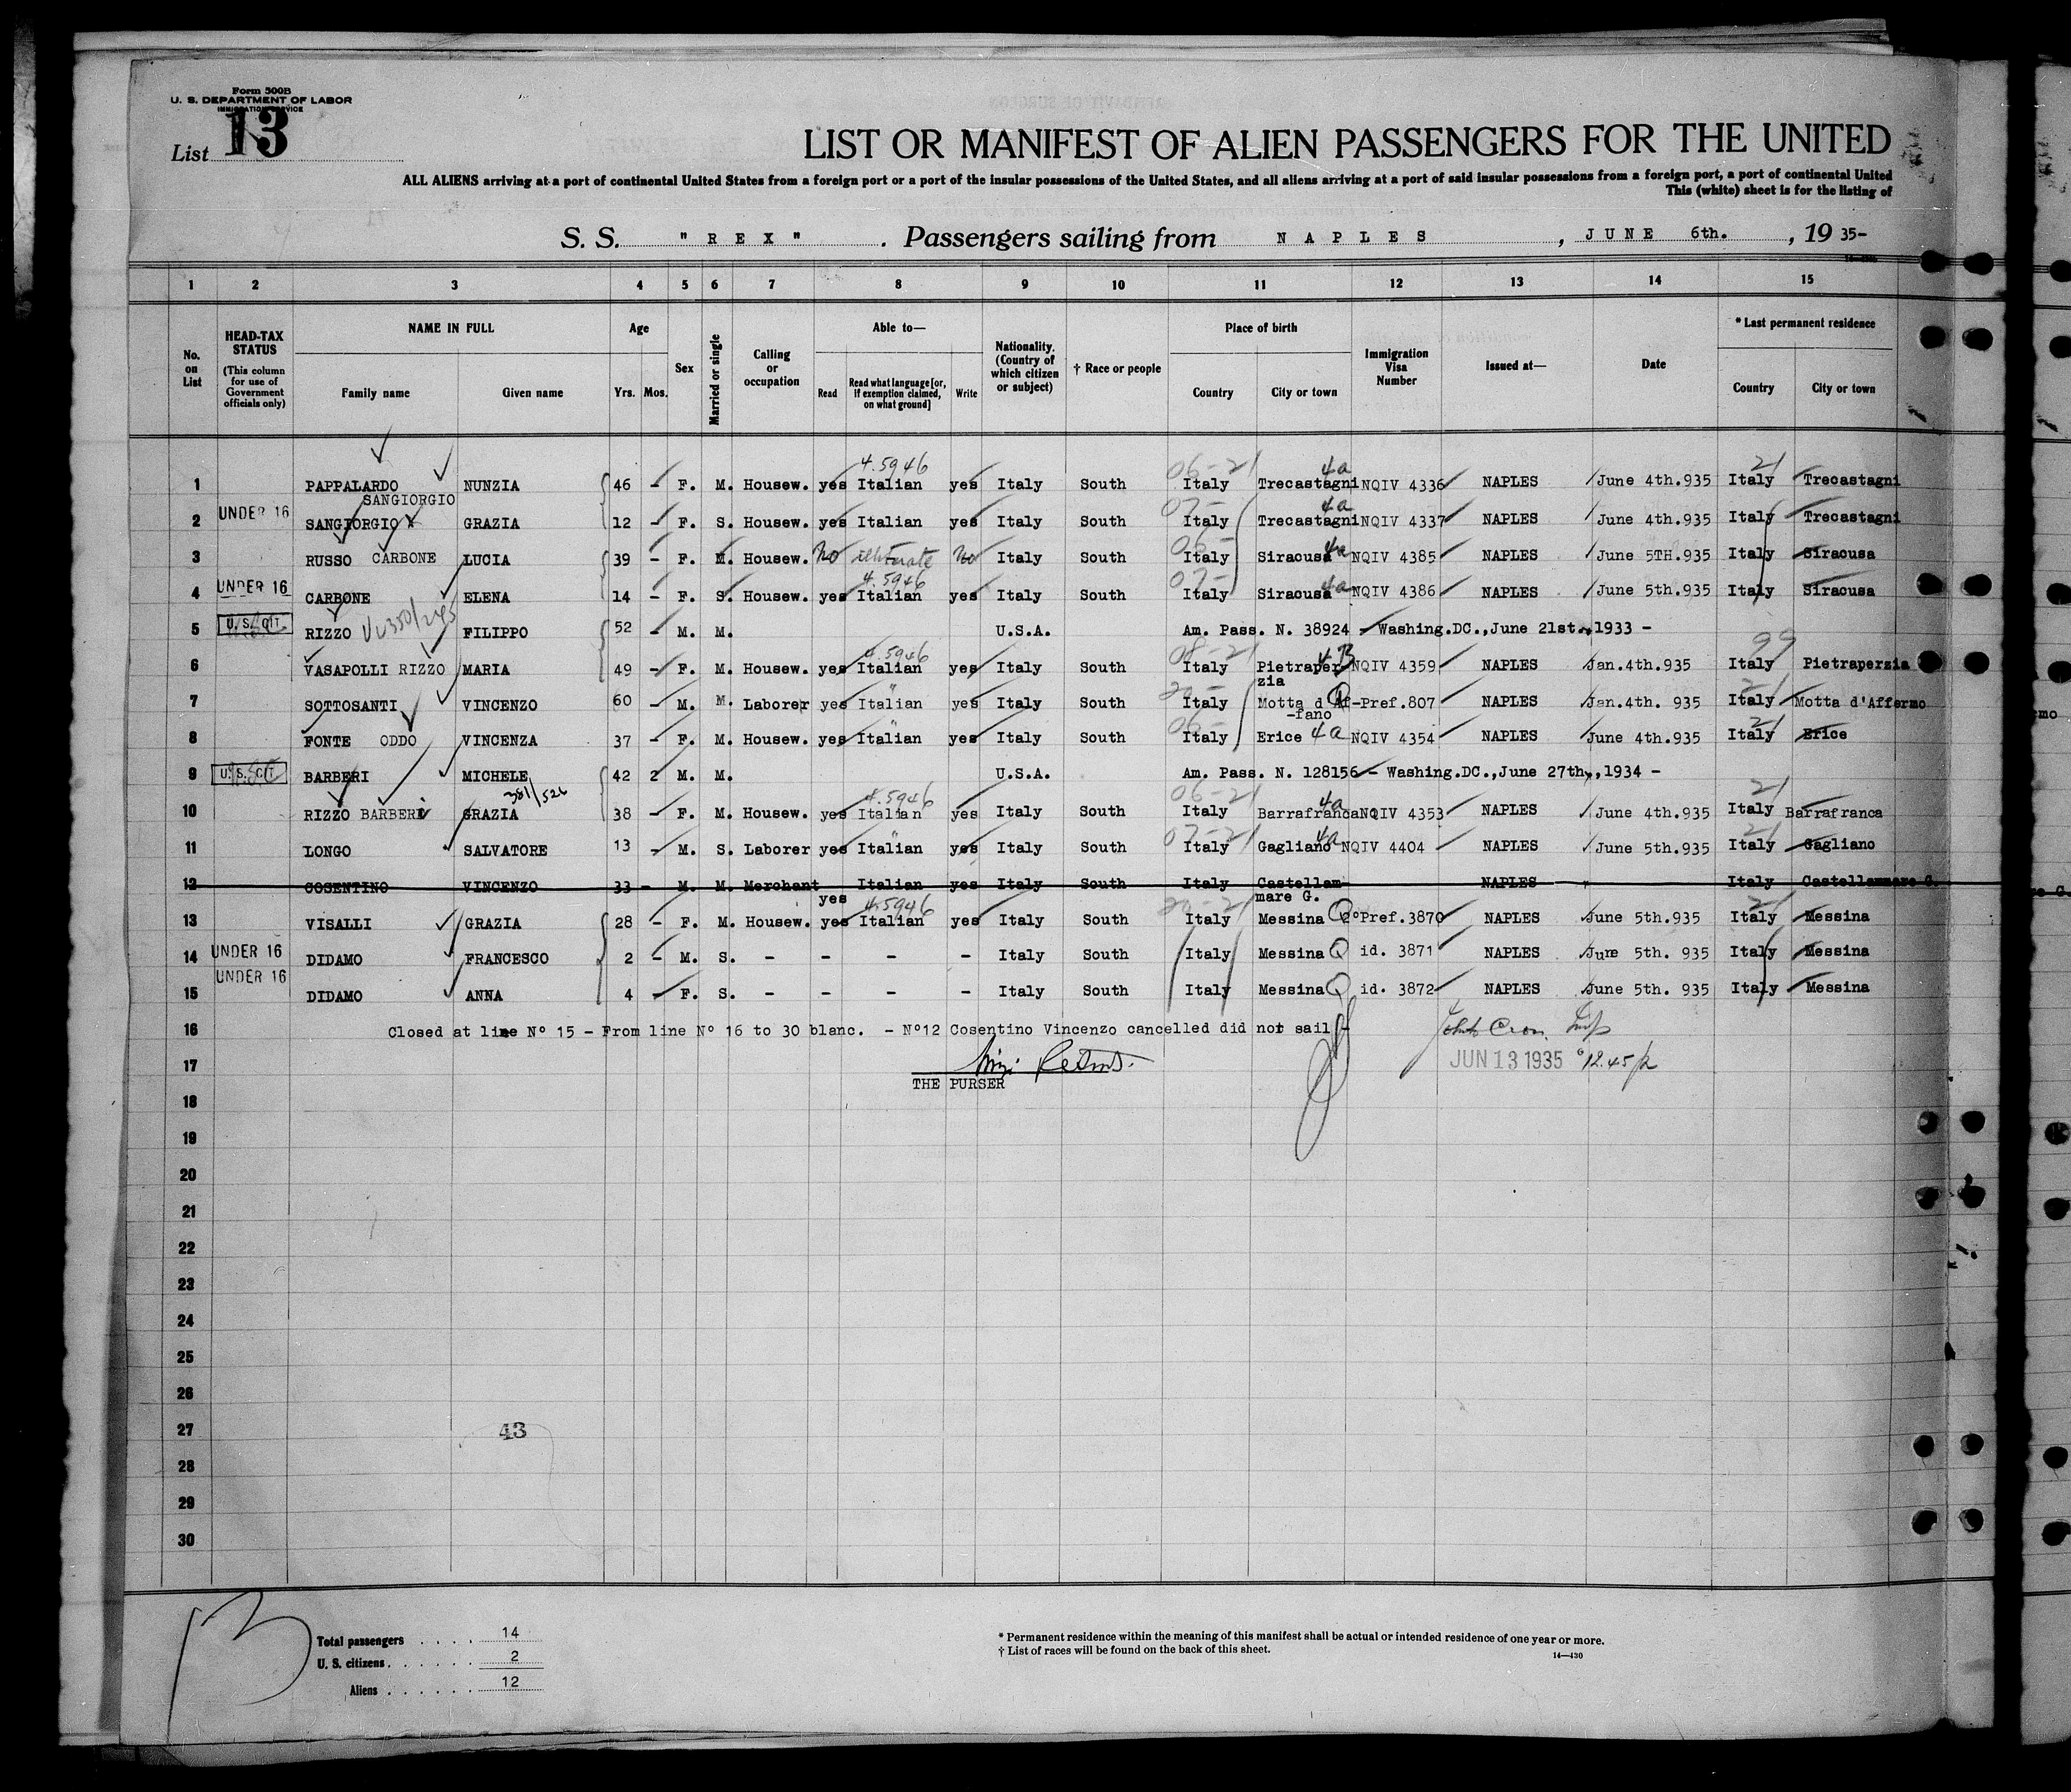 Form 500B
U. S. DEPARTMENT OF LABOR
IMMIGRATION SERVICE
List 13
LIST OR MANIFEST OF ALIEN PASSENGERS FOR THE UNITED
ALL ALIENS arriving at a port of continental United States from a foreign port or a port of the insular possessions of the United States, and all aliens arriving at a port of said insular possessions from a foreign port, a port of continental United
This (white) sheet is for the listing of
S. S. "REX" . Passengers sailing from NAPLES , JUNE 6th. , 19 35-
1 2 3 4 5 6 7 8 9 10 11 12 13 14 15
No. on List
HEAD-TAX STATUS (This column for use of Government officials only)
NAME IN FULL Family name Given name
Age Yrs. Mos.
Sex
Married or single
Calling or occupation
Able to— Read Read what language [or, if exemption claimed, on what ground] Write
Nationality. (Country of which citizen or subject)
† Race or people
Place of birth Country City or town
Immigration Visa Number
Issued at—
Date
* Last permanent residence Country City or town
4.5946 06-21 4a 21
1 PAPPALARDO NUNZIA 46 - F. M. Housew. yes Italian yes Italy South Italy Trecastagni NQIV 4336 NAPLES June 4th.935 Italy Trecastagni
SANGIORGIO
2 UNDER 16 SANGIORGIO x GRAZIA 12 - F. S. Housew. yes Italian yes Italy South 07- Italy Trecastagni 4a NQIV 4337 NAPLES June 4th.935 Italy Trecastagni
3 RUSSO CARBONE LUCIA 39 - F. M. Housew. No illiterate No Italy South 06- Italy Siracusa 4a NQIV 4385 NAPLES June 5TH.935 Italy Siracusa
4.5946
4 UNDER 16 CARBONE ELENA 14 - F. S. Housew. yes Italian yes Italy South 07- Italy Siracusa 4a NQIV 4386 NAPLES June 5th.935 Italy Siracusa
5 U.S. CIT. RIZZO FILIPPO 52 - M. M. U.S.A. Am. Pass. N. 38924 - Washing.DC.,June 21st.,1933 -
4.5946 08-21 4B 99
6 VASAPOLLI RIZZO MARIA 49 - F. M. Housew. yes Italian yes Italy South Italy Pietraper NQIV 4359 NAPLES Jan.4th.935 Italy Pietraperzia
zia
7 SOTTOSANTI VINCENZO 60 - M. M. Laborer yes Italian yes Italy South 20- Italy Motta d'Af- Q Pref.807 NAPLES Jan.4th. 935 21 Italy Motta d'Affermo
-fano
8 FONTE ODDO VINCENZA 37 - F. M. Housew. yes Italian yes Italy South 06- Italy Erice 4a NQIV 4354 NAPLES June 4th.935 21 Italy Erice
9 U.S. CIT. BARBERI MICHELE 42 2 M. M. U.S.A. Am. Pass. N. 128156 - Washing.DC.,June 27th.,1934 -
381/526 4.5946 06-21 4a 21
10 RIZZO BARBERI GRAZIA 38 - F. M. Housew. yes Italian yes Italy South Italy Barrafranca NQIV 4353 NAPLES June 4th.935 Italy Barrafranca
11 LONGO SALVATORE 13 - M. S. Laborer yes Italian yes Italy South 07-21 Italy Gagliano 4a NQIV 4404 NAPLES June 5th.935 21 Italy Gagliano
12 COSENTINO VINCENZO 33 - M. M. Merchant Italian yes Italy South Italy Castellam- NAPLES - Italy Castellammare G.
yes mare G.
4.5946 20-21 21
13 VISALLI GRAZIA 28 - F. M. Housew. yes Italian yes Italy South Italy Messina Q 2°Pref.3870 NAPLES June 5th.935 Italy Messina
14 UNDER 16 DIDAMO FRANCESCO 2 - M. S. - - - - Italy South Italy Messina Q id. 3871 NAPLES June 5th. 935 Italy Messina
15 UNDER 16 DIDAMO ANNA 4 - F. S. - - - - Italy South Italy Messina Q id. 3872 NAPLES June 5th. 935 Italy Messina
16 Closed at line N° 15 - From line N° 16 to 30 blanc. - N°12 Cosentino Vincenzo cancelled did not sail -
17 JUN 13 1935 12.45 p
THE PURSER
18
19
20
21
22
23
24
25
26
27 43
28
29
30
13
Total passengers . . . . 14
U. S. citizens . . . . . . 2
Aliens . . . . . . 12
* Permanent residence within the meaning of this manifest shall be actual or intended residence of one year or more.
† List of races will be found on the back of this sheet.
14—430